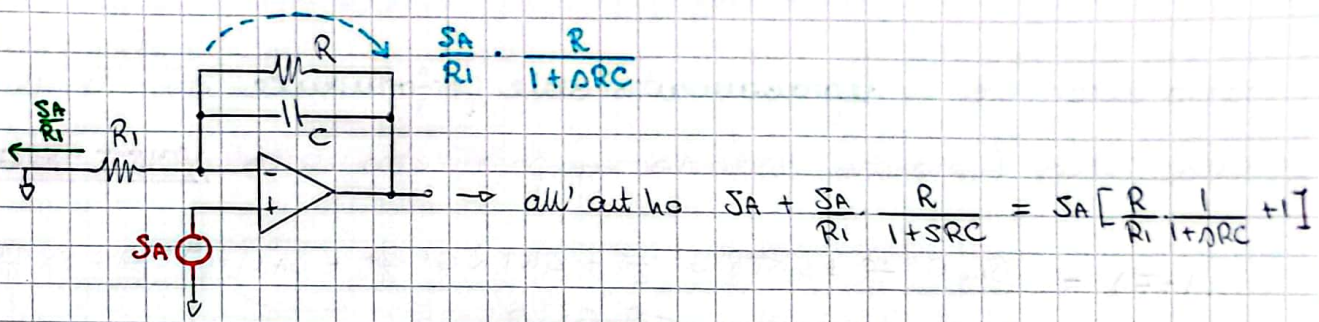 R
SA/R1 · R/(1+sRC)
SA/R1
R1
C
-
+
SA
→ all' out ho SA + SA/R1 · R/(1+SRC) = SA [R/R1 · 1/(1+sRC) +1]